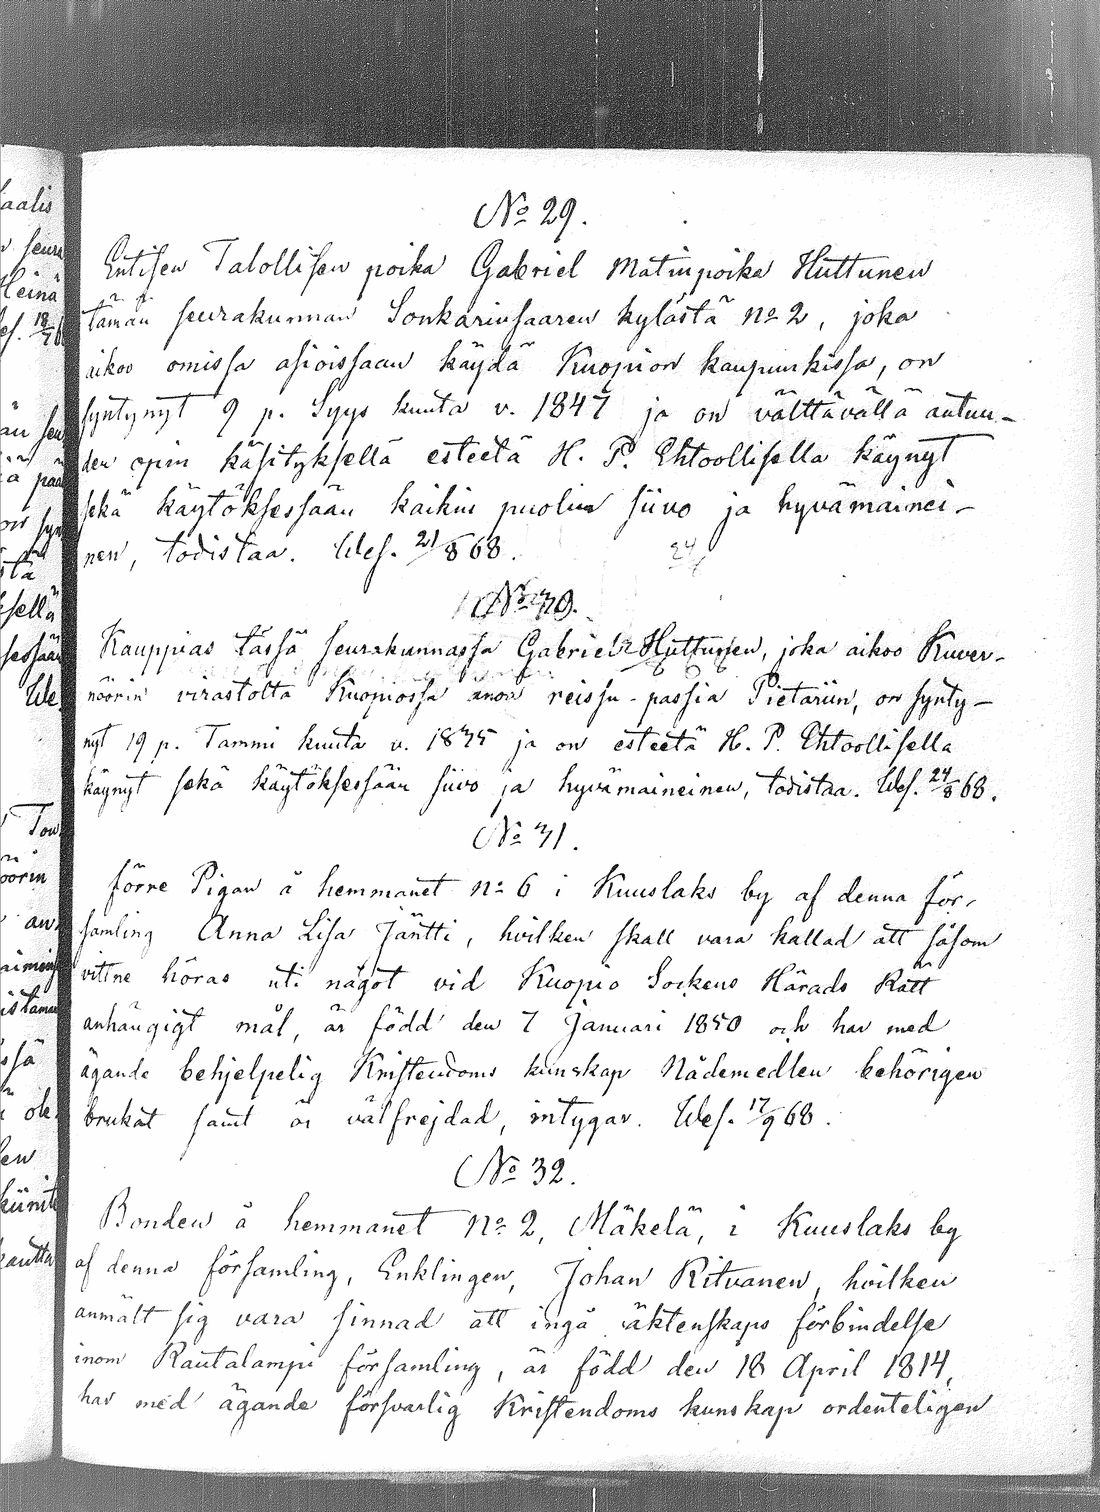 No 29.
Entisen Talollisen poika Gabriel Matinpoika Huttunen
tämän seurakunnan Sonkarinsaaren kylästä no 2, joka
aikoo omissa asioissaan käydä Kuopion kaupunkissa, on
syntynyt 9 p. Syys kuuta v. 1847 ja on välttävällä autuu-
den opin käsityksellä esteetä H. P. Ehtoollisella käynyt
sekä käytöksessään kaikin puolin siivo ja hyvämainei-
nen, todistaa. Wes. 21/8 68.
No 30.
Kauppias tässä seurakunnassa Gabriel Huttunen, joka aikoo Kuver-
nöörin virastolta Kuopiossa anoa reissu-passia Pietariin, on synty-
nyt 19 p. Tammi kuuta v. 1835 ja on esteetä H. P. Ehtoollisella
käynyt sekä käytöksessään siivo ja hyvämaineinen, todistaa. Wes. 24/8 68.
No 31.
förre Pigan å hemmanet no 6 i Kuuslaks by af denna för-
samling Anna Lisa Jäntti, hvilken skall vara kallad att såsom
vittne höras uti något vid Kuopio Sockens Härads Rätt
anhängigt mål, är född den 7 Januari 1850 och har med
ägande behjelpelig Kristendoms kunskap Nådemedlen behörigen
brukat samt är välfrejdad, intygar. Wes. 17/9 68.
No 32.
Bonden å hemmanet no 2, Mäkelä, i Kuuslaks by
af denna församling, Enklingen, Johan Ritvanen, hvilken
anmält sig vara sinnad att ingå äktenskaps förbindelse
inom Rautalampi församling, är född den 18 April 1814,
har med ägande försvarlig Kristendoms kunskap ordenteligen